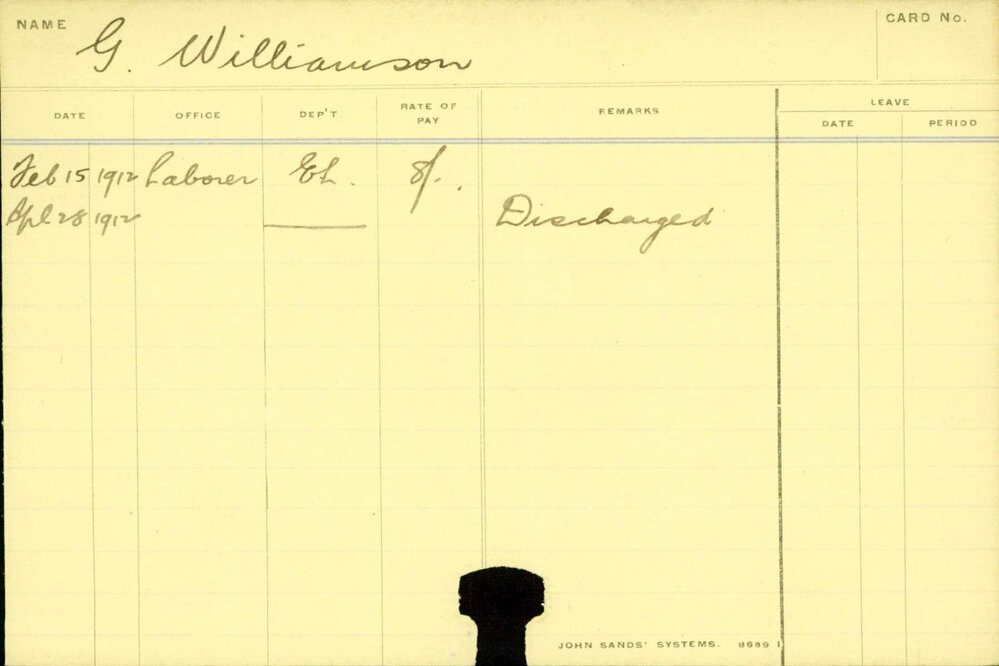 NAME G. Williamson CARD No.
DATE OFFICE DEP'T RATE OF PAY REMARKS LEAVE
DATE PERIOD
Feb 15 1912 Laborer EL. 8/.
Apl 28 1912 Discharged
JOHN SANDS' SYSTEMS. 8689